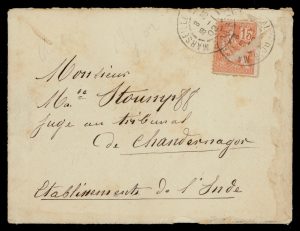 MARSEILLE
15
Monsieur
Stoumpff
Juge au tribunal
de Chandernagor
Etablissements de l'Inde